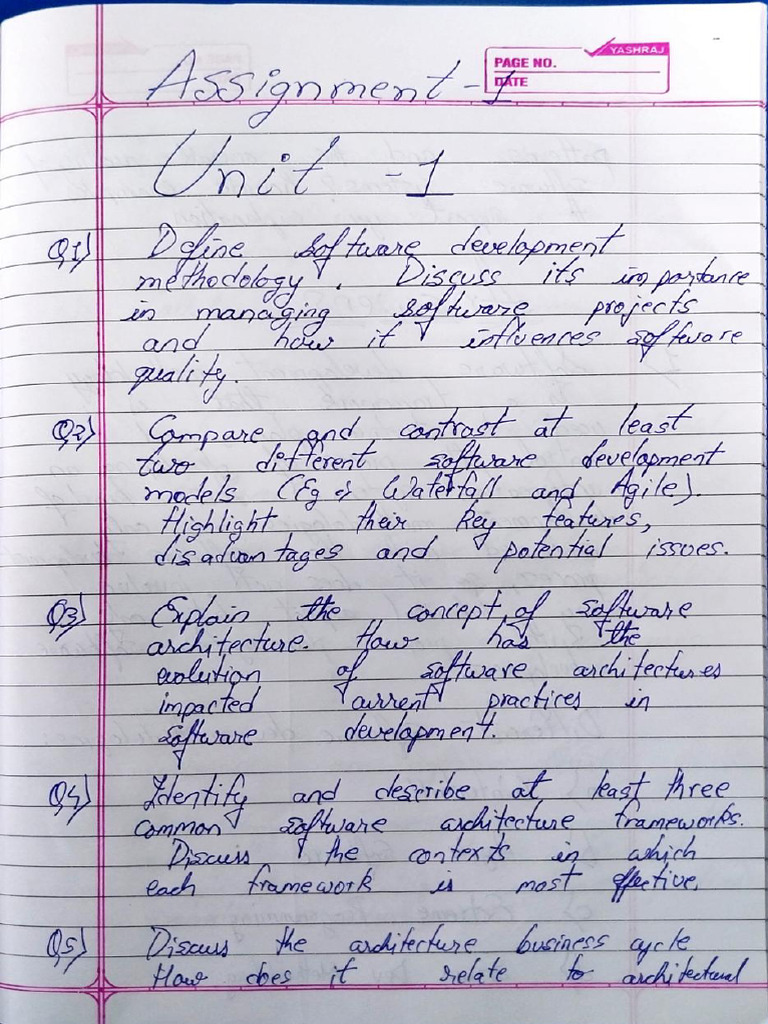 YASHRAJ
PAGE NO.
DATE
Assignment-1
Unit -1
Q1) Define software development
methodology. Discuss its importance
in managing software projects
and how it influences software
quality.
Q2) Compare and contrast at least
two different software development
models (Eg :) Waterfall and Agile).
Highlight their key features,
disadvantages and potential issues.
Q3) Explain the concept of software
architecture. How has the
evolution of software architectures
impacted current practices in
software development.
Q4) Identify and describe at least three
common software architecture frameworks.
Discuss the contexts in which
each framework is most effective.
Q5) Discuss the architecture business cycle
How does it relate to architectural